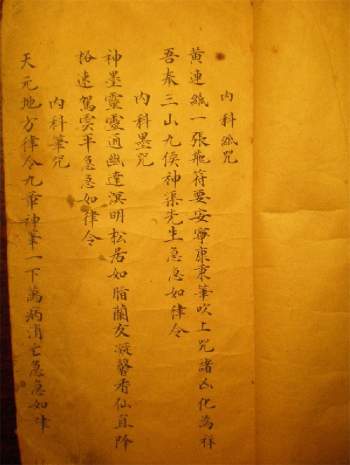 內科紙咒
黃連紙一張施符要安寧康秉筆吹上咒諸凶化為祥
吾奉三山九侯神渠先生急急如律令
內科墨咒
神墨靈靈通幽達溟明松居如脂蘭友凝馨香仙真降
恪速駕雲平急急如律令
內科筆咒
天元地方律令九章神筆一下萬病消亡急急如律